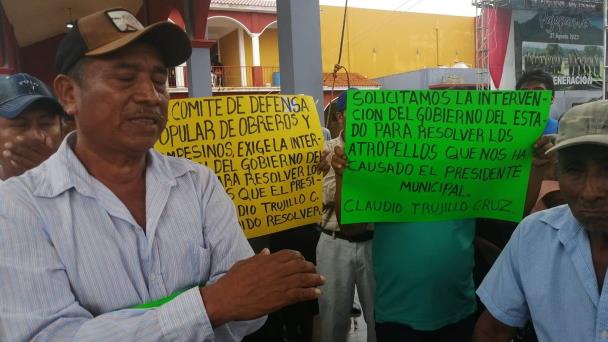 COMITE DE DEFENSA
POPULAR DE OBREROS Y
MPESINOS, EXIGE LA INTER-
DEL GOBIERNO DEL
PARA RESOLVER LAS
QUE EL PRESI
DIO TRUJILLO C.
DIDO RESOLVER.
SOLICITAMOS LA INTERVEN-
CION DEL GOBIERNO DEL ESTA
DO PARA RESOLVER LOS
ATROPELLOS QUE NOS HA
CAUSADO EL PRESIDENTE
MUNICIPAL.
CLAUDIO TRUJILLO CRUZ.
27 Agosto 2023
ENERACIÓN